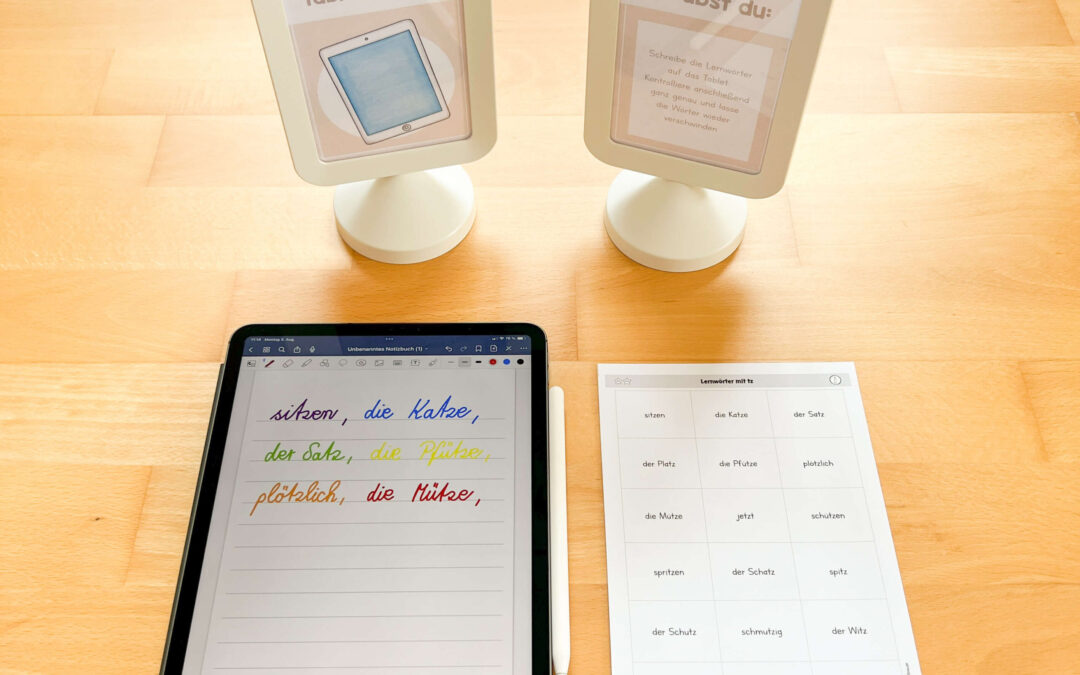 bst du:
Schreibe die Lernwörter
auf das Tablet.
Kontrolliere anschließend
ganz genau und lasse
die Wörter wieder
verschwinden
Unbenanntes Notizbuch (1)
sitzen, die Katze,
der Satz, die Pfütze,
plötzlich, die Mütze,
Lernwörter mit tz
sitzen die Katze der Satz
der Platz die Pfütze plötzlich
die Mütze jetzt schützen
spritzen der Schatz spitz
der Schutz schmutzig der Witz